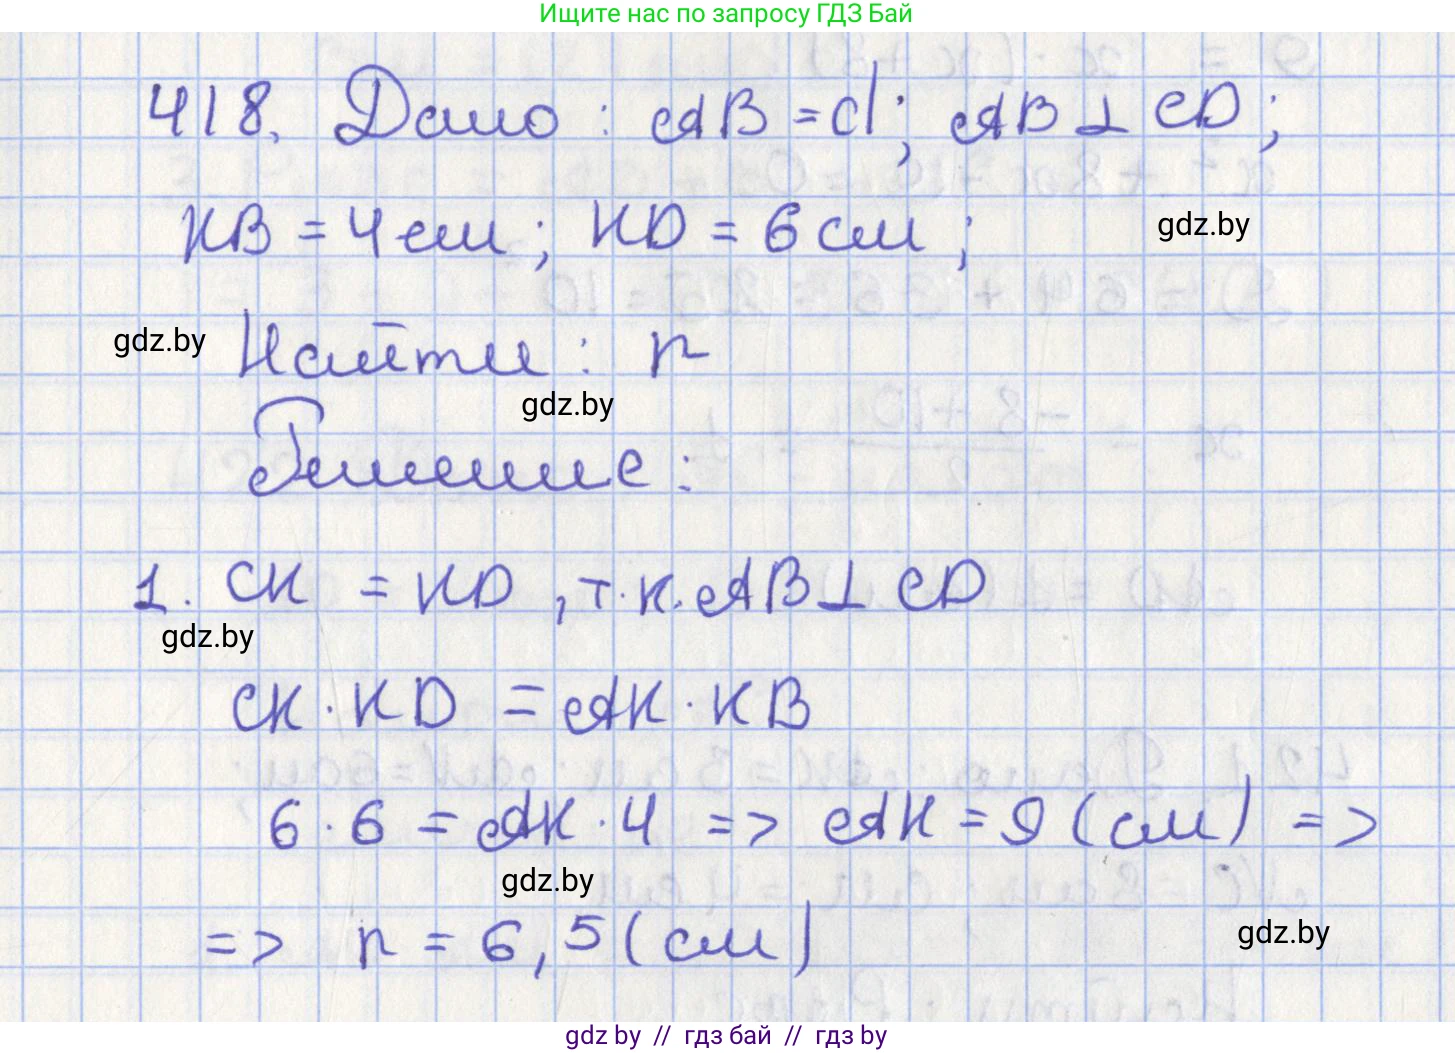 Ищите нас по запросу ГДЗ Бай
418. Дано: AB = d; AB ⊥ CD;
KB = 4 см; KD = 6 см;
gdz.by
gdz.by
Найти: r
gdz.by
Решение:
1. CK = KD, т.к. AB ⊥ CD
gdz.by
CK · KD = AK · KB
6 · 6 = AK · 4 => AK = 9 (см) =>
gdz.by
=> r = 6,5 (см)
gdz.by
gdz by // гдз бай // гдз by